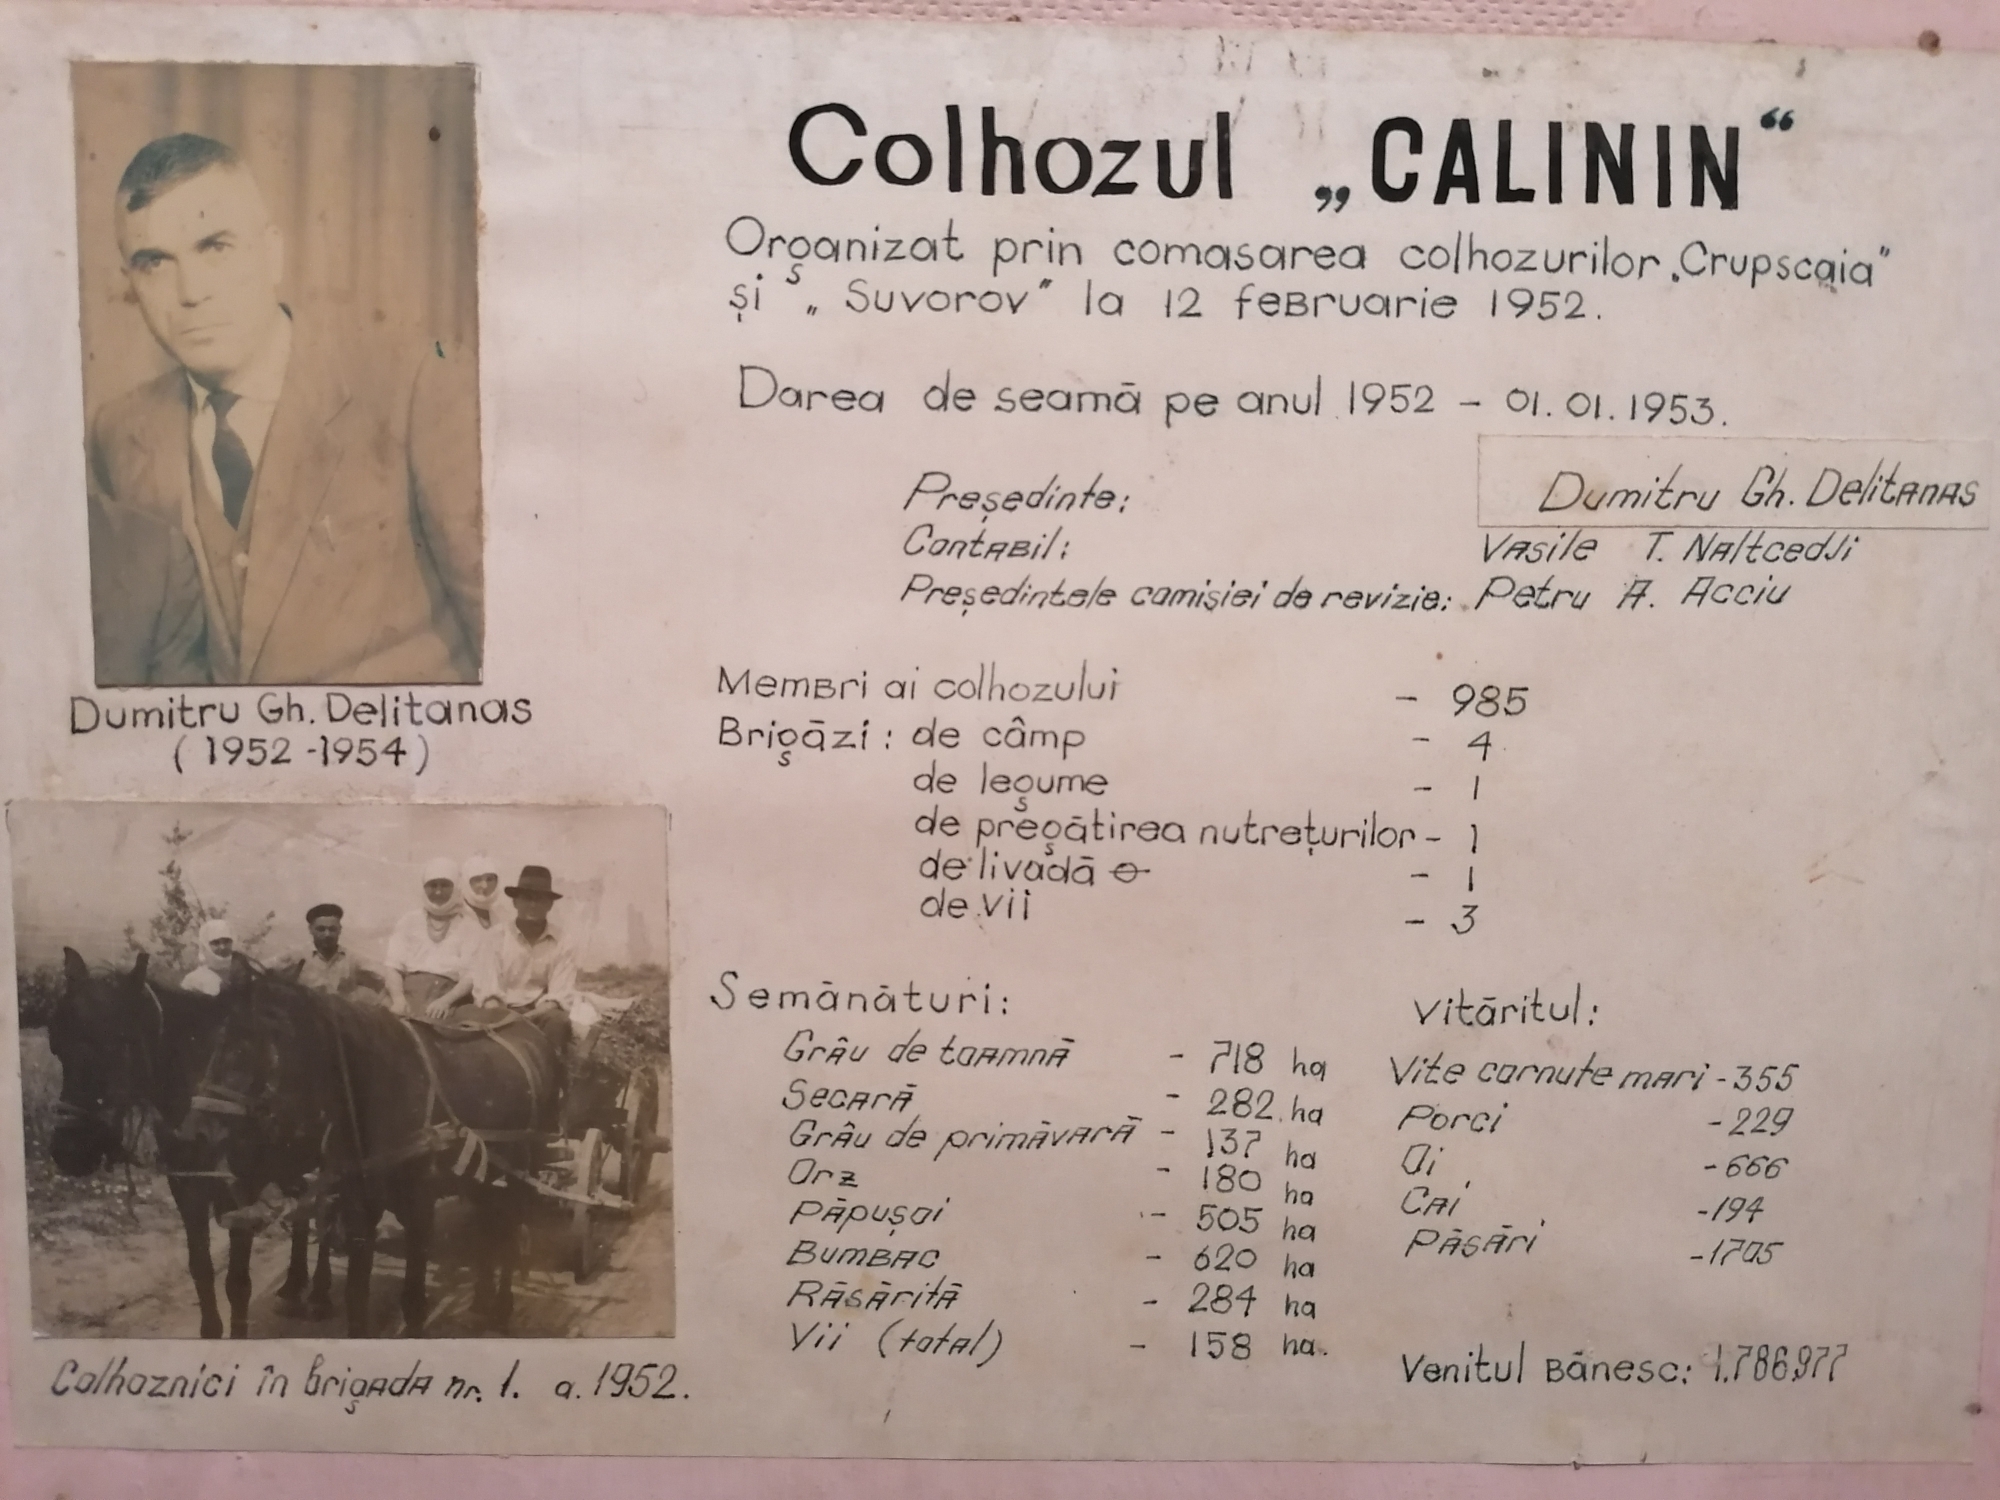 Colhozul „CALININ“
Organizat prin comasarea colhozurilor „Crupscaia"
și „Suvorov" la 12 februarie 1952.
Darea de seamă pe anul 1952 - 01.01.1953.
Președinte: Dumitru Gh. Delitanas
Contabil: Vasile T. Naltcedji
Președintele comisiei de revizie: Petru A. Acciu
Dumitru Gh. Delitanas
(1952-1954)
Membri ai colhozului - 985
Brigăzi: de câmp - 4
de legume - 1
de pregătirea nutrețurilor - 1
de livadă - 1
de vii - 3
Semănături:
Grâu de toamnă - 718 ha
Secară - 282 ha
Grâu de primăvară - 137 ha
Orz - 180 ha
Păpușoi - 505 ha
Bumbac - 620 ha
Răsărită - 284 ha
Vii (total) - 158 ha.
Vităritul:
Vite cornute mari - 355
Porci - 229
Oi - 666
Cai - 194
Păsări - 1705
Venitul bănesc: 1.786.977
Colhoznici în brigada nr. 1. a. 1952.